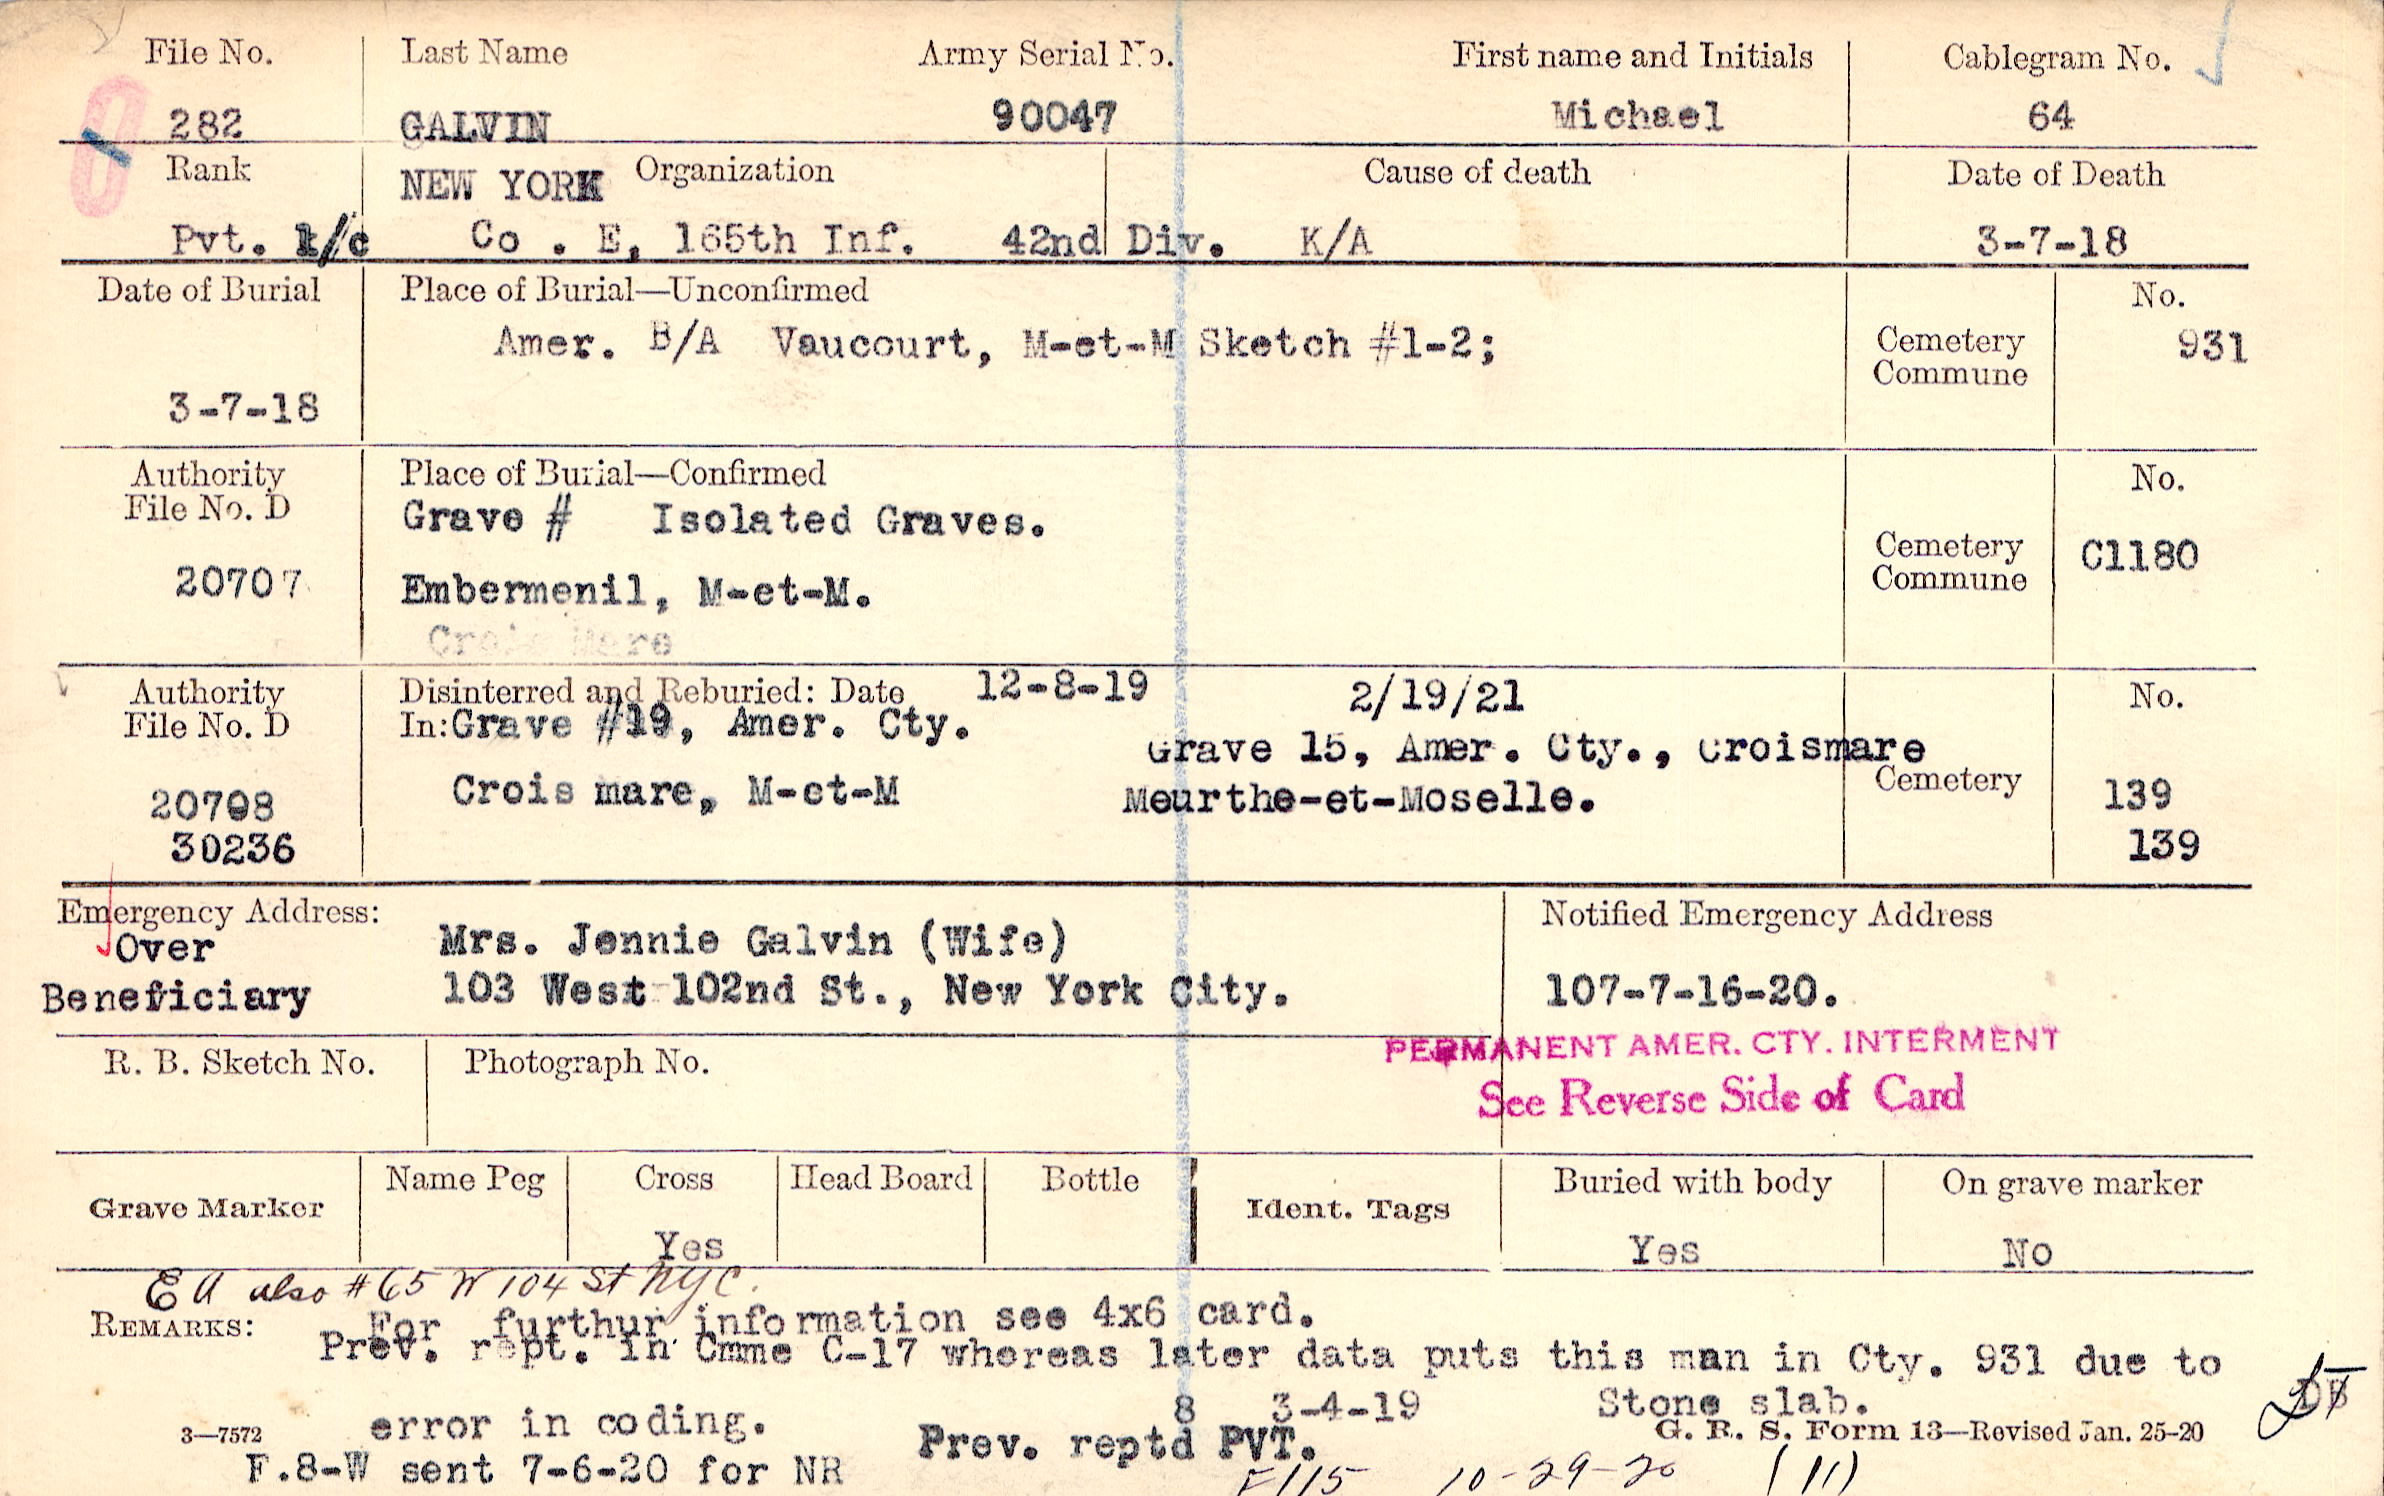 File No. Last Name Army Serial No. First name and Initials Cablegram No.
282 GALVIN 90047 Michael 64
Rank NEW YORK Organization Cause of death Date of Death
Pvt. 1/c Co . E, 165th Inf. 42nd Div. K/A 3-7-18
Date of Burial Place of Burial—Unconfirmed No.
Amer. B/A Vaucourt, M-et-M Sketch #1-2; Cemetery 931
Commune
3-7-18
Authority Place of Burial—Confirmed No.
File No. D Grave # Isolated Graves.
Cemetery C1180
20707 Embermenil, M-et-M. Commune
Crois Mare
Authority Disinterred and Reburied: Date 12-8-19 2/19/21 No.
File No. D In: Grave #19, Amer. Cty. Grave 15, Amer. Cty., Croismare
20708 Crois mare, M-et-M Meurthe-et-Moselle. Cemetery 139
30236 139
Emergency Address: Notified Emergency Address
Over Mrs. Jennie Galvin (Wife)
Beneficiary 103 West 102nd St., New York City. 107-7-16-20.
PERMANENT AMER. CTY. INTERMENT
R. B. Sketch No. Photograph No. See Reverse Side of Card
Grave Marker Name Peg Cross Head Board Bottle Ident. Tags Buried with body On grave marker
Yes Yes No
E A also #65 W 104 St NYC.
REMARKS: For furthur information see 4x6 card.
Prev. rept. in Cmme C-17 whereas later data puts this man in Cty. 931 due to
error in coding. 8 3-4-19 Stone slab.
3—7572 Prev. reptd PVT. G. R. S. Form 13—Revised Jan. 25-20
F.8-W sent 7-6-20 for NR
F115 10-29-20 (11)